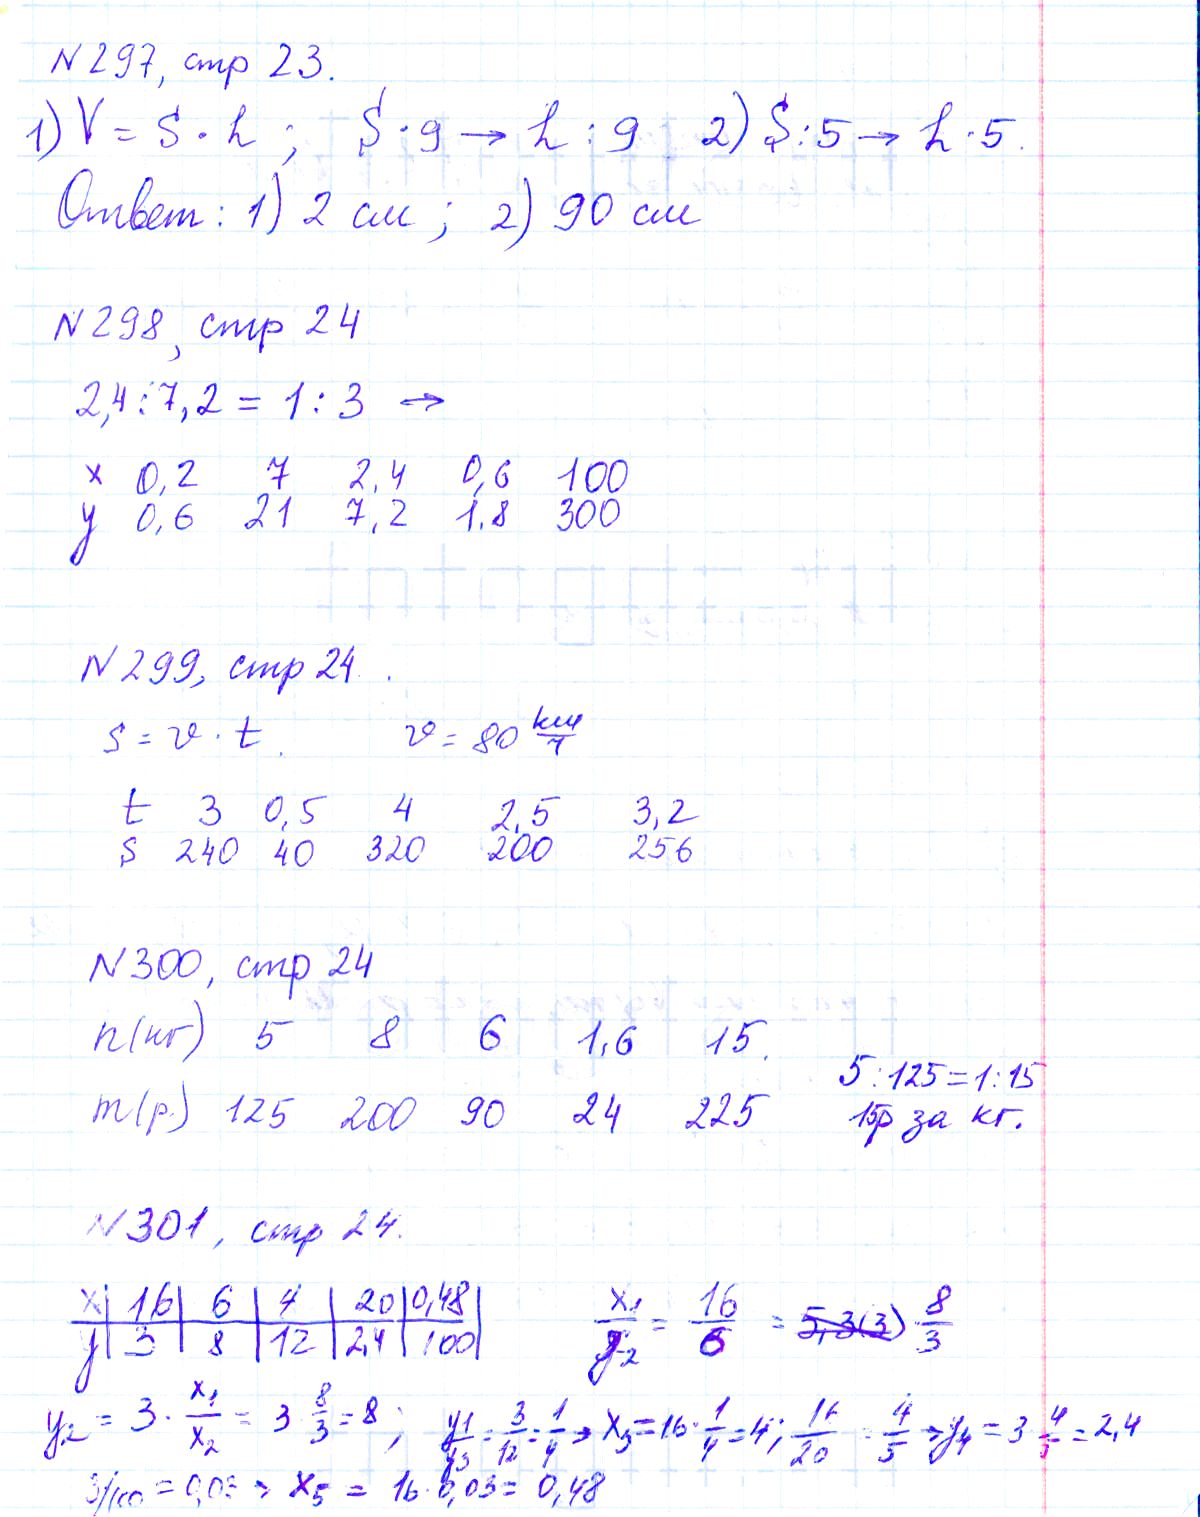 N297, стр 23.
1) V = S · h ; S · 9 → h : 9 2) S : 5 → h · 5.
Ответ: 1) 2 см ; 2) 90 см
N298, стр 24
2,4 : 7,2 = 1 : 3 →
x 0,2 7 2,4 0,6 100
y 0,6 21 7,2 1,8 300
N299, стр 24.
S = v · t. v = 80 км/ч
t 3 0,5 4 2,5 3,2
S 240 40 320 200 256
N300, стр 24
n(кг) 5 8 6 1,6 15.
m(р.) 125 200 90 24 225
5 : 125 = 1 : 15
15р за кг.
N301, стр 24.
x 16 6 4 20 0,48
y 3 8 12 2,4 100
x₁/y₂ = 16/6 = 5,3(3) 8/3
y₂ = 3 · x₁/x₂ = 3 · 8/3 = 8 ; y₁/y₃ = 3/12 = 1/4 → x₃ = 16 · 1/4 = 4 ; 16/20 = 4/5 → y₄ = 3 · 4/5 = 2,4
3/100 = 0,03 → x₅ = 16 · 0,03 = 0,48